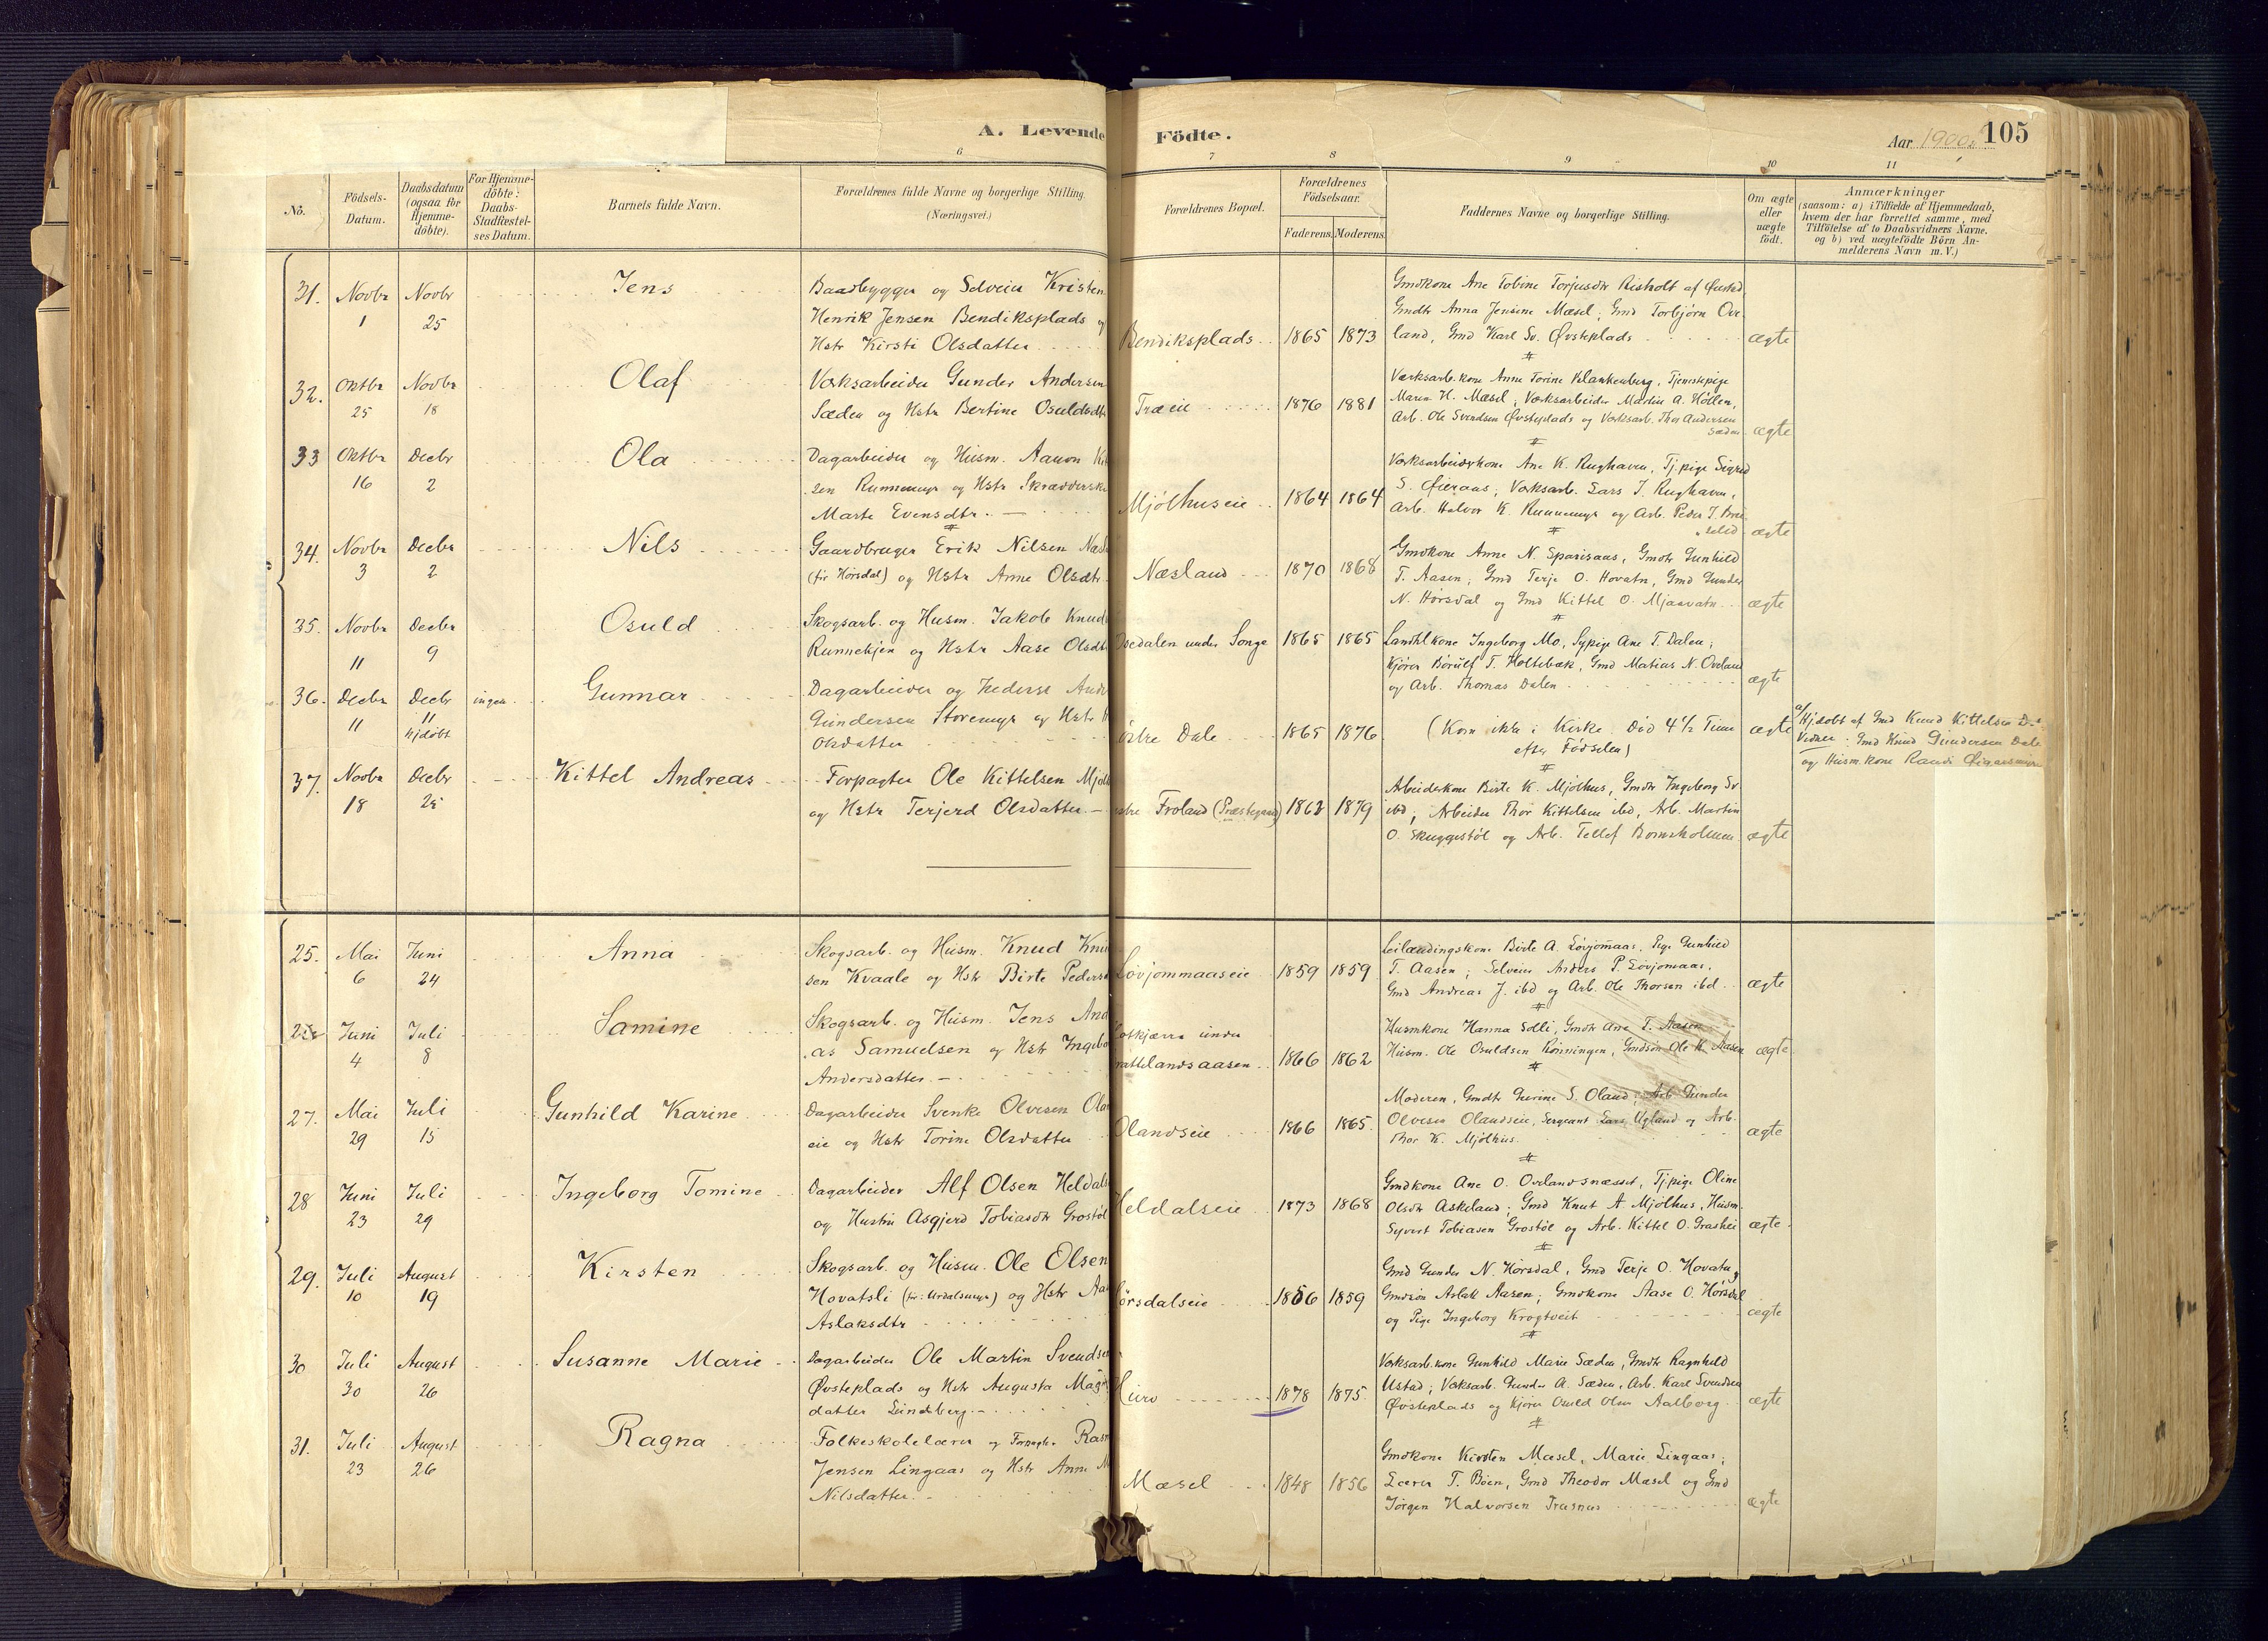 A. Levende Födte.
Aar 1900. 105
6 7 8 9 10 11
No.
Födsels-
Datum.
Daabsdatum
(ogsaa for
Hjemme-
döbte).
For Hjemme-
döbte:
Daabs-
Stadfæstel-
ses Datum.
Barnets fulde Navn.
Forældrenes fulde Navne og borgerlige Stilling.
(Næringsvei.)
Forældrenes Bopæl.
Forældrenes
Födselsaar.
Faderens. Moderens.
Faddernes Navne og borgerlige Stilling.
Om ægte
eller
uægte
födt.
Anmærkninger
(saasom: a) i Tilfælde af Hjemmedaab,
hvem der har forrettet samme, med
Tilföielse af to Daabsvidners Navne.
og b) ved uægtefödte Börn An-
melderens Navn m.V.)
31. Novbr 1 Novbr 25 Jens
Baadbygger og Selveier Kristen
Henrik Jensen Bendiksplads og
Hstr Kirsti Olsdatter
Bendiksplads 1865 1873
Gmdkone Ane Tobine Torjusdtr Risholt af
Gmdtr Anna Jensine Mæsel; Gmd Torbjörn Ove-
land, Gmd Karl Sv. Øvsteplads
ægte
32. Oktbr 25 Novbr 18 Olaf
Værksarbeider Gunder Andersen
Sæden og Hstr Bertine Osuldsdtr
Træeie 1876 1881
Værksarb.kone Anne Torine Klankenberg, Tjenestepige
Maren H. Mæsel; Værksarbeider Martin A. Höllen,
Arb. Ole Svendsen Øvsteplads og Værksarb. Thor Andersen
Sæden
ægte
33 Oktbr 16 Decbr 2 Ola
Dagarbeider og Husm. Aanon Kit
sen Runnemyr og Hstr Skrædderske
Marte Evensdtr.
Mjölhuseie 1864 1864
Værksarbeiderkone Ane K. Rughaven, Tj.pige Sigrid
S. Øieraas; Værksarb. Lars J. Rughaven,
Arb. Halvor K. Runnemyr og Arb. Peder J.
ægte
34. Novbr 3 Decbr 2 Nils
Gaardbruger Erik Nilsen Næsl
(för Hörsdal) og Hstr Anne Olsdtr.
Næsland 1870 1868
Gmdkone Anne N. Sparisaas, Gmdtr Gunhild
T. Aasen; Gmd Terje O. Hovatn, Gmd Gunder
N. Hörsdal og Gmd Kittel O. Mjaavatn
ægte
35. Novbr 11 Decbr 9 Osuld
Skogsarb. og Husm. Jakob Knud
Runnekjen og Hstr Aase Olsdtr
Osedalen under Songe 1865 1865
Landhlkone Ingeborg Mo, Sypige Ane T. Dalen;
Kjörer Börulf T. Holtebæk, Gmd Matias N. Oveland
og Arb. Thomas Dalen
ægte
36. Decbr 11 Decbr 11 hjdöbt ingen Gunnar
Dagarbeider og Inderst Andr
Gundersen Storemyr og Hstr
Olsdatter
östre Dale 1865 1876
(Kom ikke i Kirke. Död 4 1/2 Time
efter Födselen)
ægte
a/ Hjdöbt af Gmd Knud Kittelsen D
Vidner: Gmd Knud Gundersen Dale
og Husm.kone Randi
37. Novbr 18 Decbr 25 Kittel Andreas
Forpagter Ole Kittelsen Mjölh
og Hstr Terjerd Olsdatter.
östre Froland (Præstegaard) 1868 1879
Arbeiderkone Birte K. Mjölhus, Gmdtr Ingeborg Sv
ibd; Arbeider Thor Kittelsen ibd, Arb. Martin
O. Skuggestöl og Arb. Tellef Bornsholmen
ægte
25. Mai 6 Juni 24 Anna
Skogsarb. og Husm. Knud Knu
sen Kvaale og Hstr Birte Pedersd
Lövjommaaseie 1859 1859
Leilændingskone Birte A. Lövjomaas, Pige Gunhild
T. Aasen; Selveier Anders P. Lövjomaas,
Gmd Andreas J. ibd og Arb. Ole Thorsen ibd
ægte
Juni 4 Juli 8 Samine
Skogsarb. og Husm. Jens And
as Samuelsen og Hstr Ingebo
Andersdatter.
under
1866 1862
Husmkone Hanna Solli, Gmdtr Ane T. Aasen
Husm. Ole Osuldsen Rönningen, Gmdsön Ole K. Aasen
ægte
27. Mai 29 Juli 15 Gunhild Karine
Dagarbeider Svenke Olvesen Olan
eie og Hstr Torine Olsdatter
Olandseie 1866 1865
Moderen, Gmdtr Gurine S. Oland; Arb Gunder
Olvesen Olandseie, Sergeant Lars Ugland og Arb.
Thor K. Mjölhus.
ægte
28 Juni 23 Juli 29 Ingeborg Tomine
Dagarbeider Alf Olsen Heldals
og Hustru Asgjerd Tobiasdtr Grostöl
Heldalseie 1873 1868
Gmdkone Ane O. Ovelandsnæsset, Tjpige Oline
Olsdtr Askeland; Gmd Knut A. Mjölhus, Husm.
Syvert Tobiasen Grostöl og Arb. Kittel O. Grashei
ægte
29. Juli 10 August 19 Kirsten
Skogsarb. og Husm. Ole Olsen
Hovatsli (för: Urdalsmyr) og Hstr Aa
Aslaksdtr
Hörsdalseie 1856 1859
Gmd Gunder N. Hörsdal, Gmd Terje O. Hovatn,
Gmdsön Aslak Aasen; Gmdkone Aase O. Hörsdal
og Pige Ingeborg Krogtveit
ægte
30 Juli 30 August 26 Susanne Marie
Dagarbeider Ole Martin Svendsen
Øvsteplads og Hstr Augusta Mag
datter Lundberg.
Huro 1878 1875
Værksarb.kone Gunhild Marie Sæden, Gmdtr Ragnhild
Ustad; Værksarb. Gunder A. Sæden, Arb. Karl Svendsen
Øvsteplads og Kjörer Osuld Olsen Aalborg
ægte
31. Juli 23 August 26 Ragna
Folkeskolelærer og Forpagter Rasm
Jensen Lingaas og Hstr Anne M
Nilsdatter.
Mæsel 1848 1856
Gmdkone Kirsten Mæsel, Marie Lingaas;
Lærer T. Böen, Gmd Theodor Mæsel og Gmd
Jörgen Halvorsen Træsnes
ægte